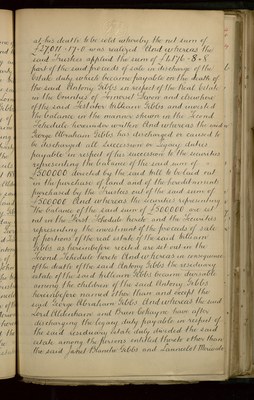 at his death to be sold whereby the net sum of
£27,011 . 17 . 0 was realized And whereas the
said Trustees applied the sum of £4176 . 8 . 8
part of the said proceeds of sale in discharge of the
estate duty which became payable on the death of
the said Antony Gibbs in respect of the Real Estate
in the Counties of Somerset Devon and elsewhere
of the said Testator William Gibbs and invested
the balance in the manner shown in the Second
Schedule hereunder written And whereas the said
George Abraham Gibbs has discharged or caused to
be discharged all Succession or Legacy duties
payable in respect of his succession to the securities
representing the balance of the said sum of
£500000 directed by the said Will to be laid out
in the purchase of land and of the hereditaments
purchased by the Trustees out of the said sum of
£500000 And whereas the securities representing
the balance of the said sum of £500000 are set
out in the First Schedule hereto and the Securities
representing the investment of the proceeds of sale
of portions of the real estate of the said William
Gibbs as hereinbefore recited are set out in the
Second Schedule hereto And whereas in consequence
of the death of the said Antony Gibbs the residuary
estate of the said William Gibbs became divisible
among the children of the said Antony Gibbs
hereinbefore named other than and except the
said George Abraham Gibbs And whereas the said
Lord Aldenham and Brien Cokayne have after
discharging the legacy duty payable in respect of
the said residuary estate duly divided the said
estate among the persons entitled thereto other than
the said Janet Blanche Gibbs and Launcelot Merivale